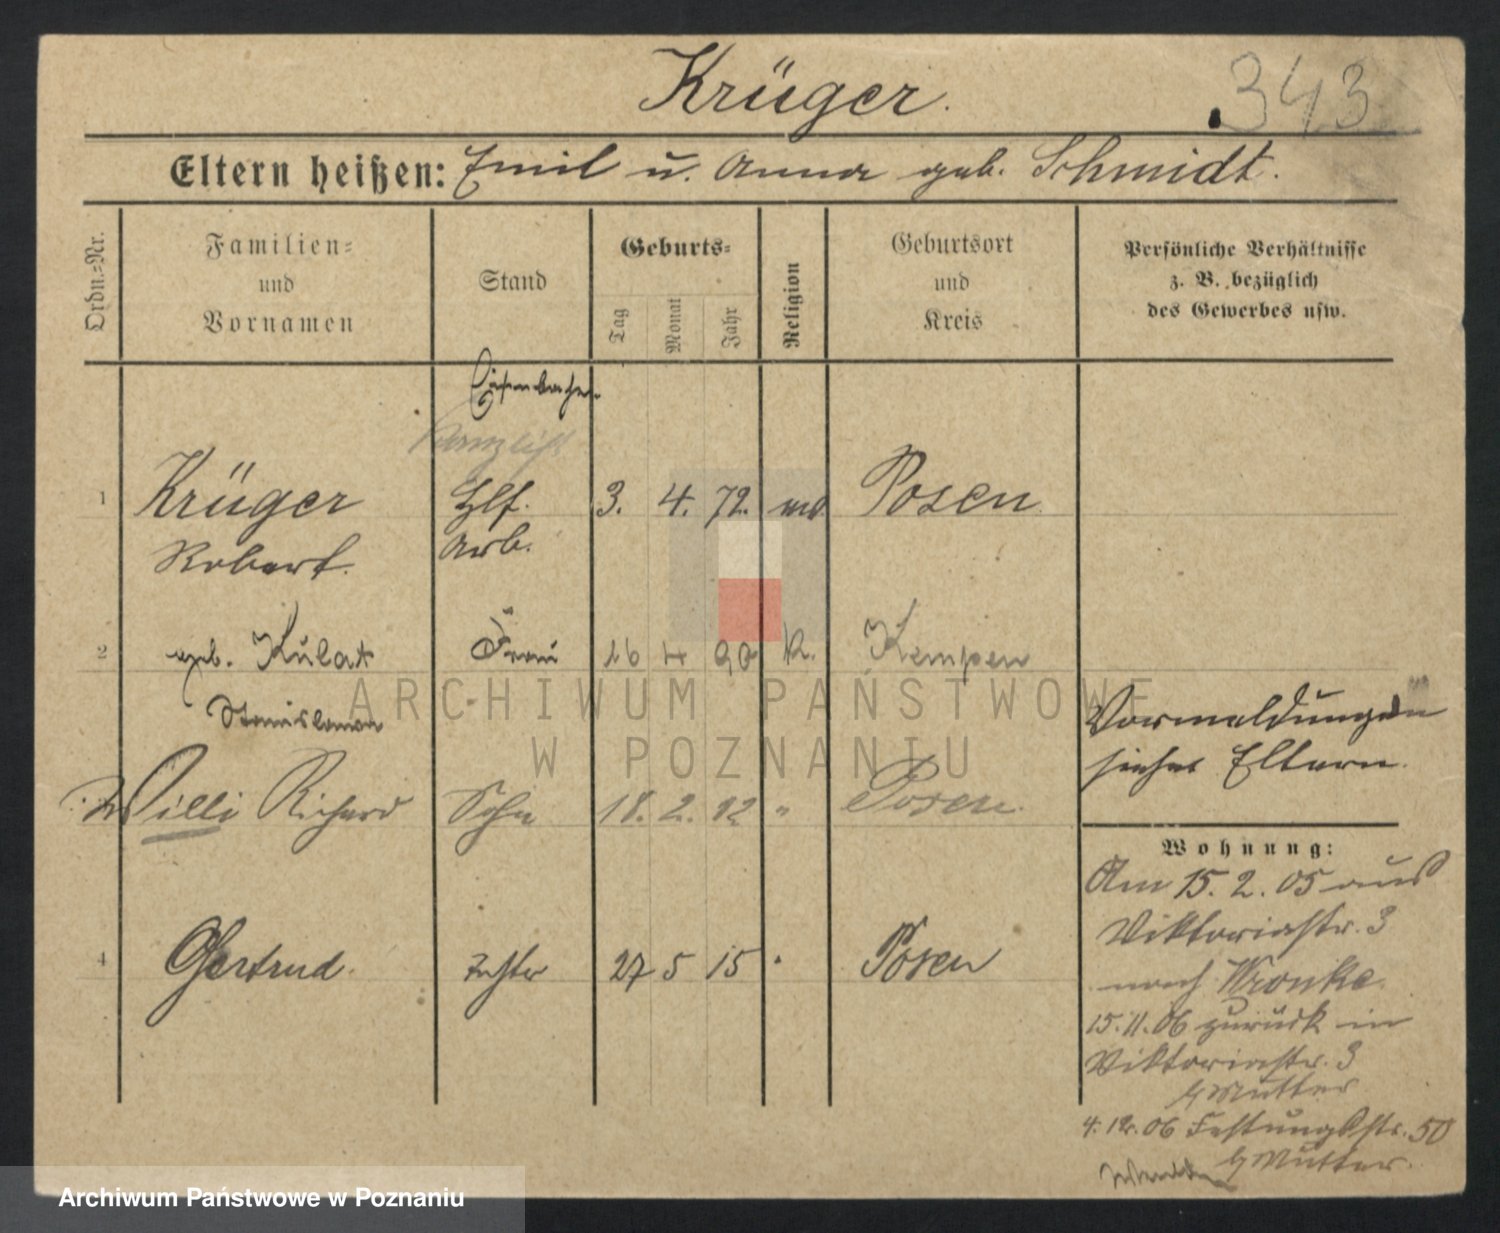 Krüger.
343
Eltern heißen: Emil u. Anna geb. Schmidt.
Ordn.=Nr.
Familien=
und
Vornamen
Stand
Geburts=
Tag
Monat
Jahr
Religion
Geburtsort
und
Kreis
Persönliche Verhältnisse
z. B. bezüglich
des Gewerbes usw.
Kanzlist
1 Krüger Hlf. 3. 4. 72. Posen
Robert. Arb.
2 geb. Kulat Frau 16 4 90 k. Kempen
Stanislawa
Willi Richard Sohn 18. 2. 12 " Posen.
4 Gertrud. 27 5 15 Posen
Vormeldungen
siehe Eltern.
Wohnung:
Am 15. 2. 05 aus
Viktoriastr. 3
nach Wronke.
15. 11. 06 zurück in
Viktoriastr. 3
b/Mutter
4. 12. 06 Festungsstr. 50
b/Mutter.
ARCHIWUM PAŃSTWOWE
W POZNANIU
Archiwum Państwowe w Poznaniu